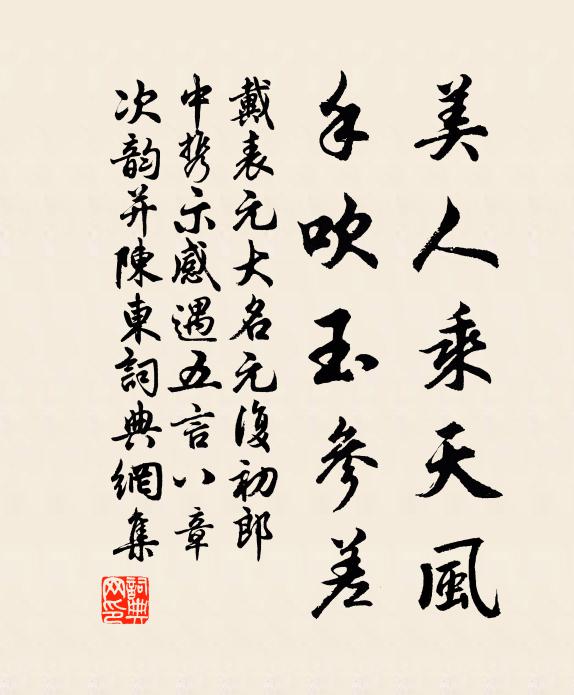 美人乘天風
手吹玉參差
戴表元大名元復初郎
中携示感遇五言八章
次韵并陳東詞典網集
詞典網印